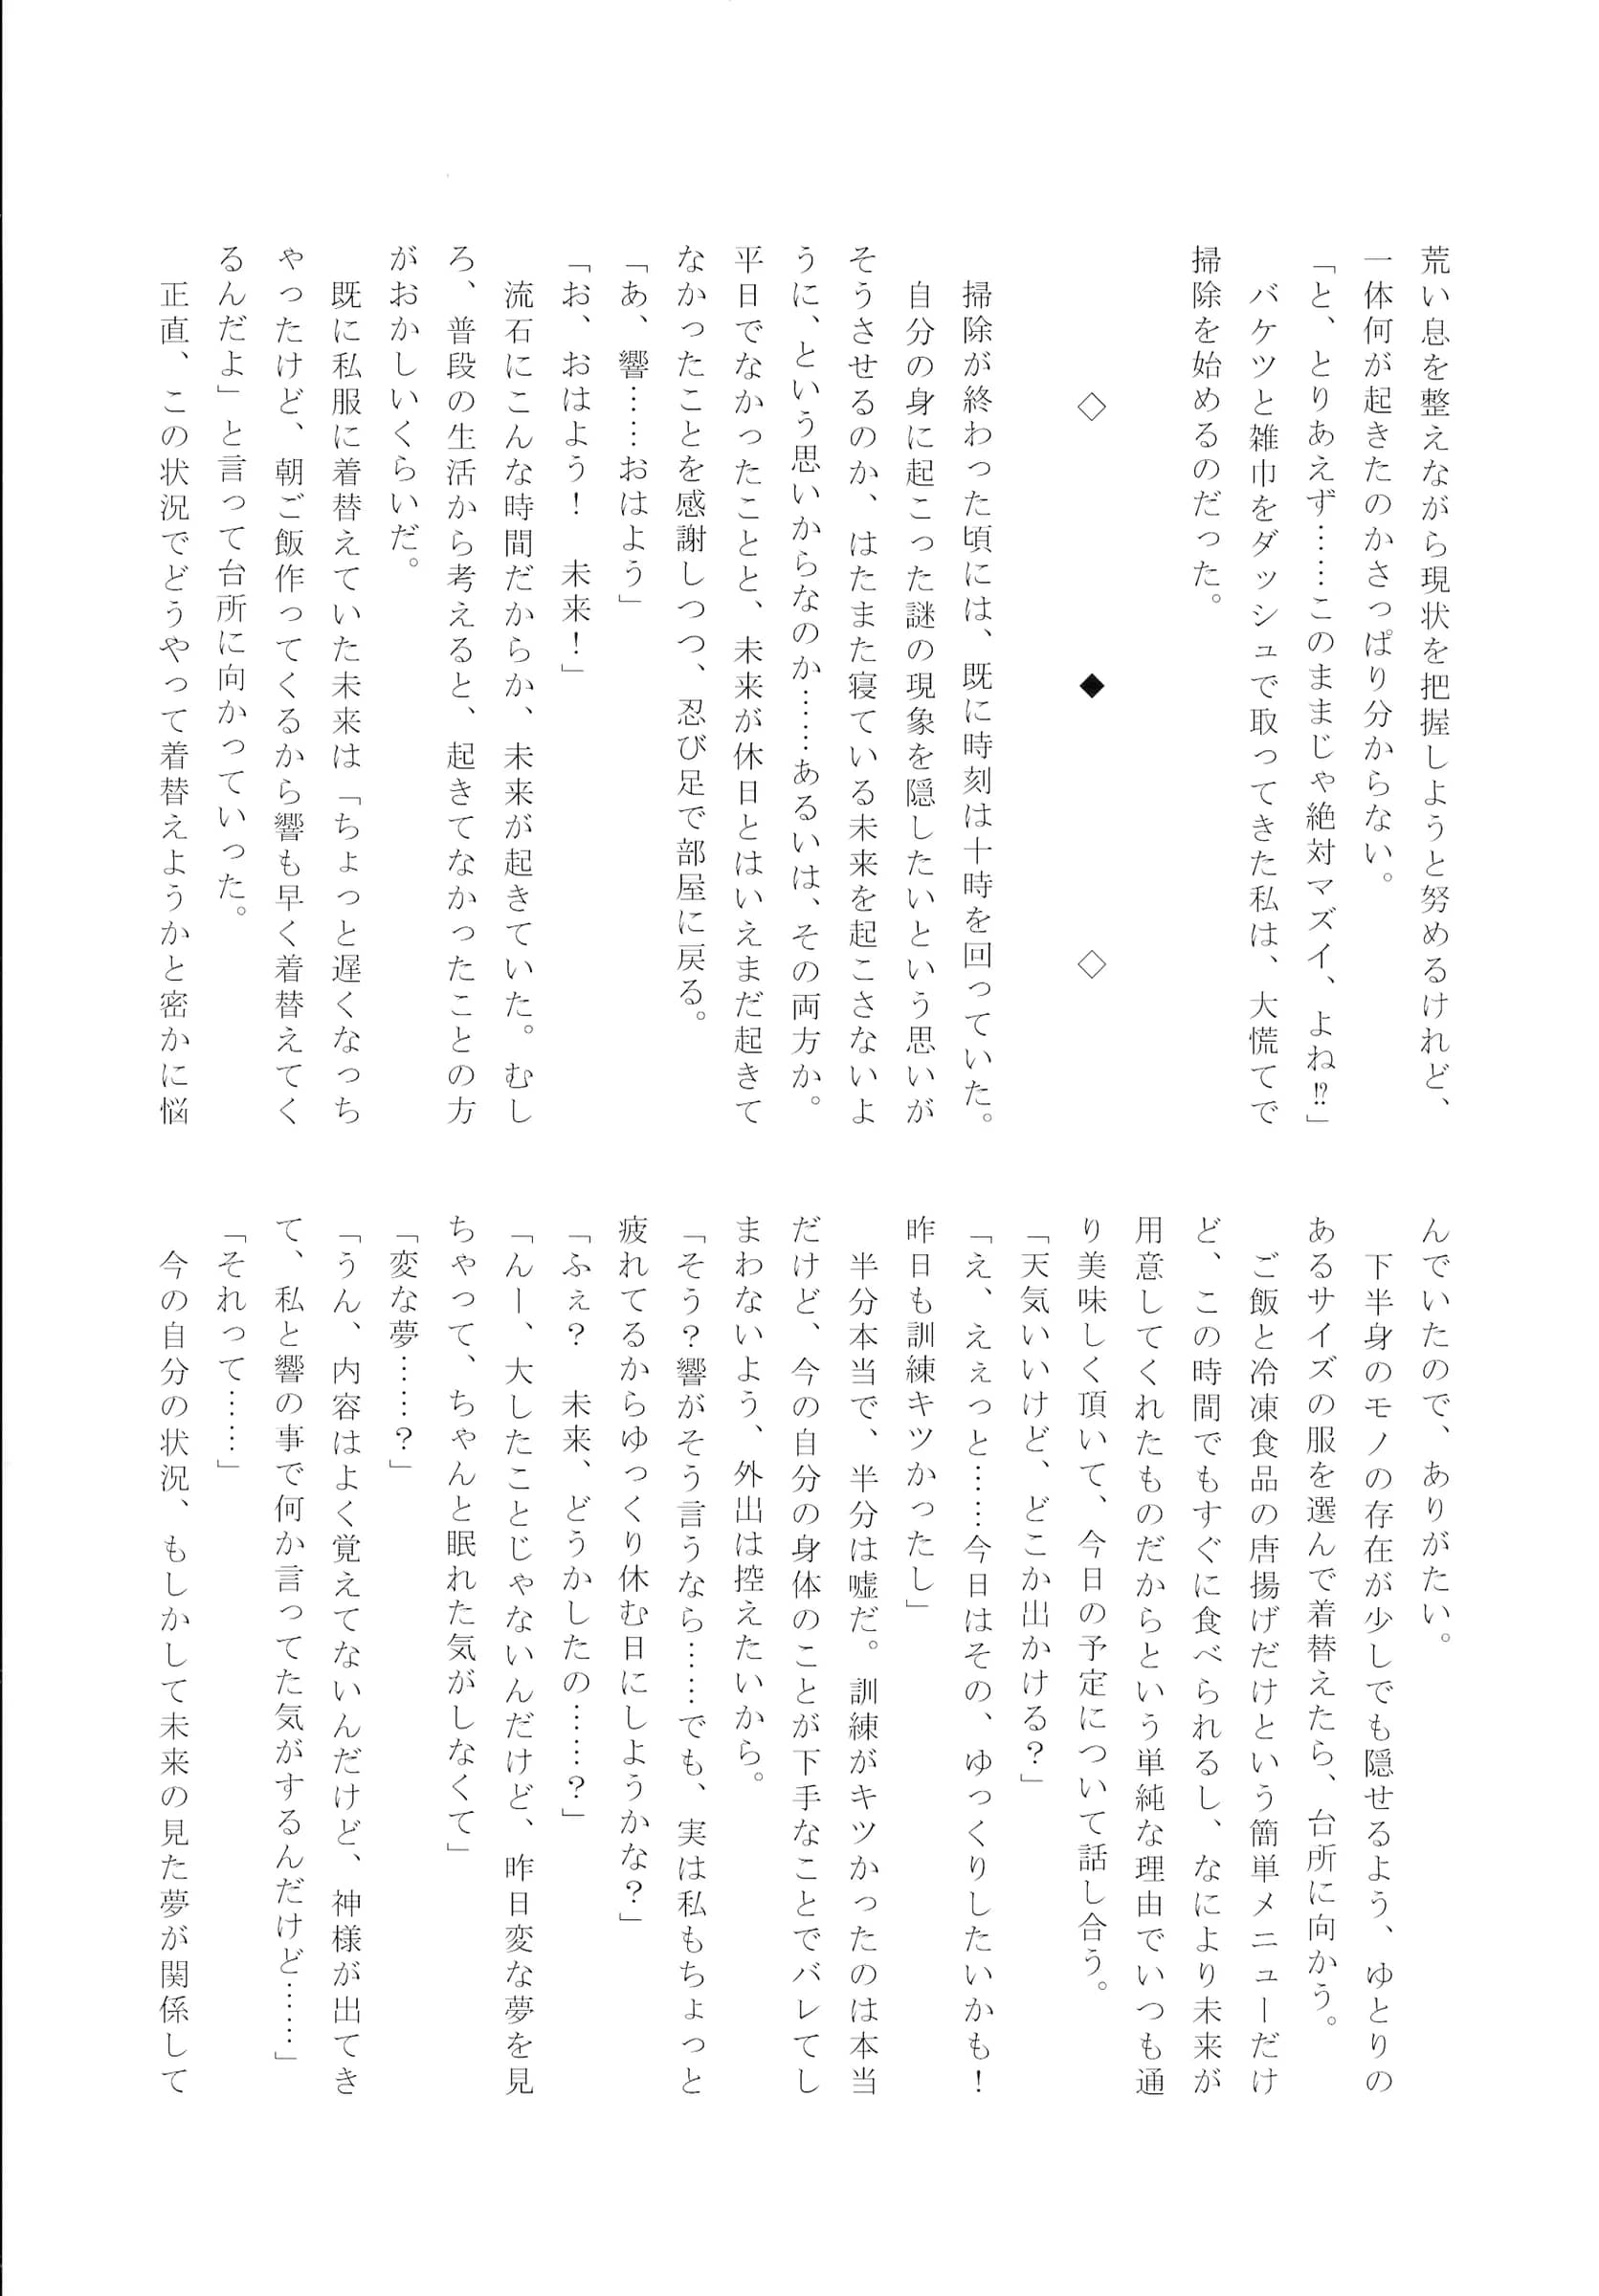 荒い息を整えながら現状を把握しようと努めるけれど、
一体何が起きたのかさっぱり分からない。
「と、とりあえず……このままじゃ絶対マズイ、よね⁉」
　バケツと雑巾をダッシュで取ってきた私は、大慌てで
掃除を始めるのだった。
◇　◆　◇
　掃除が終わった頃には、既に時刻は十時を回っていた。
　自分の身に起こった謎の現象を隠したいという思いが
そうさせるのか、はたまた寝ている未来を起こさないよ
うに、という思いからなのか……あるいは、その両方か。
平日でなかったことと、未来が休日とはいえまだ起きて
なかったことを感謝しつつ、忍び足で部屋に戻る。
「あ、響……おはよう」
「お、おはよう！　未来！」
　流石にこんな時間だからか、未来が起きていた。むし
ろ、普段の生活から考えると、起きてなかったことの方
がおかしいくらいだ。
　既に私服に着替えていた未来は「ちょっと遅くなっち
ゃったけど、朝ご飯作ってくるから響も早く着替えてく
るんだよ」と言って台所に向かっていった。
　正直、この状況でどうやって着替えようかと密かに悩
んでいたので、ありがたい。
　下半身のモノの存在が少しでも隠せるよう、ゆとりの
あるサイズの服を選んで着替えたら、台所に向かう。
　ご飯と冷凍食品の唐揚げだけという簡単メニューだけ
ど、この時間でもすぐに食べられるし、なにより未来が
用意してくれたものだからという単純な理由でいつも通
り美味しく頂いて、今日の予定について話し合う。
「天気いいけど、どこか出かける？」
「え、えぇっと……今日はその、ゆっくりしたいかも！
昨日も訓練キツかったし」
　半分本当で、半分は嘘だ。訓練がキツかったのは本当
だけど、今の自分の身体のことが下手なことでバレてし
まわないよう、外出は控えたいから。
「そう？響がそう言うなら……でも、実は私もちょっと
疲れてるからゆっくり休む日にしようかな？」
「ふぇ？　未来、どうかしたの……？」
「んー、大したことじゃないんだけど、昨日変な夢を見
ちゃって、ちゃんと眠れた気がしなくて」
「変な夢……？」
「うん、内容はよく覚えてないんだけど、神様が出てき
て、私と響の事で何か言ってた気がするんだけど……」
「それって……」
　今の自分の状況、もしかして未来の見た夢が関係して